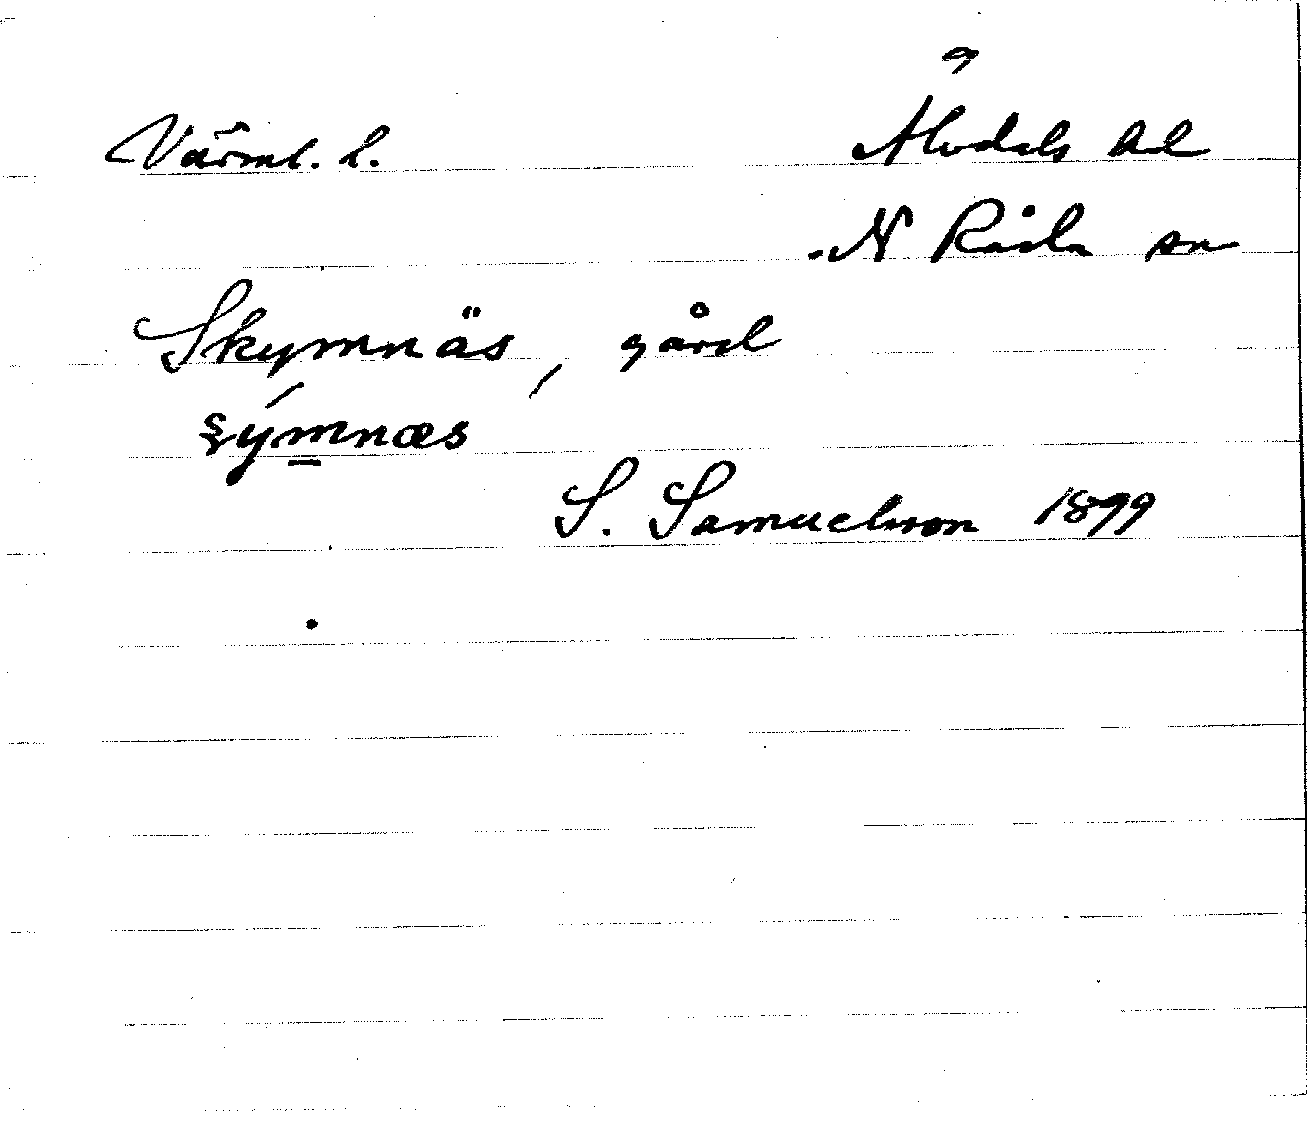 Värml. l. Älvdals hd
N Råda sn
Skymnäs, gård
ʂýmnæs
S. Samuelsson 1899